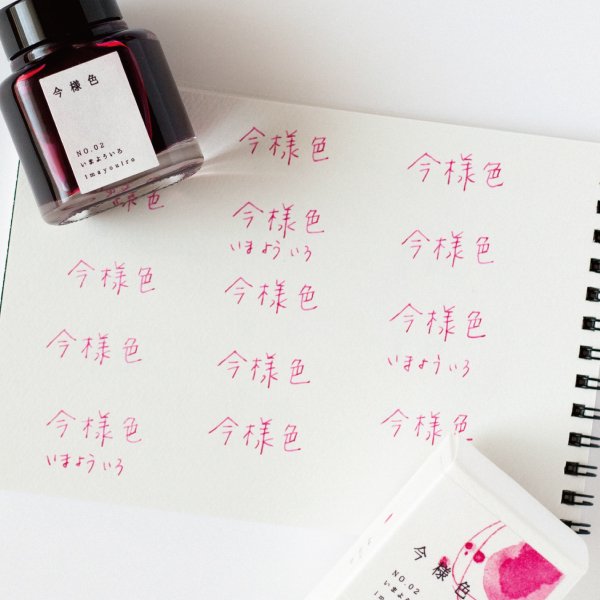 今様色
NO.02
いまよういろ
imayouiro
今様色
今様色
いまよういろ
今様色
今様色
今様色
今様色
今様色
今様色
いまよういろ
今様色
今様色
今様色
いまよういろ
今様色
今様色
NO.02
いまよういろ